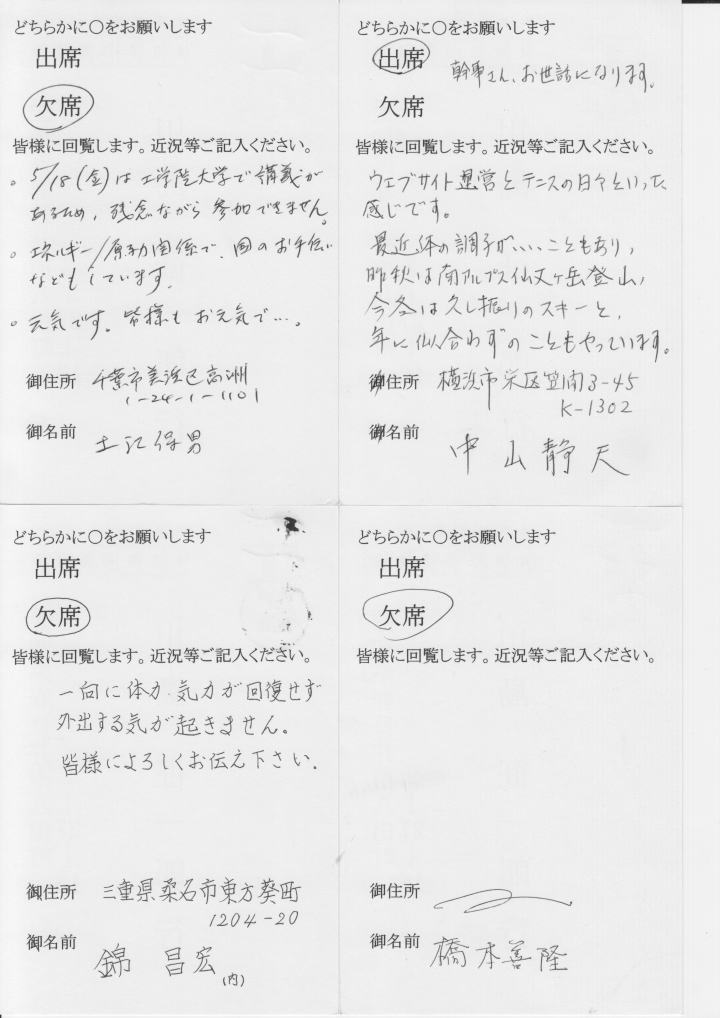 どちらかに〇をお願いします
出席
欠席
皆様に回覧します。近況等ご記入ください。
。5/18(金)は工学院大学で講義が
あるため、残念ながら参加できません。
。エネルギー/原子力関係で、国のお手伝い
などもしています。
。元気です。皆様もお元気で…。
御住所 千葉市美浜区高洲
1-24-1-1101
御名前 土江保男
どちらかに〇をお願いします
出席
幹事さん、お世話になります。
欠席
皆様に回覧します。近況等ご記入ください。
ウェブサイト運営とテニスの日々といった
感じです。
最近体の調子がいいこともあり、
昨秋は南アルプス仙丈ヶ岳登山、
今冬は久し振りのスキーと、
年に似合わずのこともやっています。
御住所 横浜市栄区笠間3-45
K-1302
御名前 中山静夫
どちらかに〇をお願いします
出席
欠席
皆様に回覧します。近況等ご記入ください。
一向に体力、気力が回復せず
外出する気が起きません。
皆様によろしくお伝え下さい.
御住所 三重県桑名市東方葵町
1204-20
御名前 錦 昌宏
(内)
どちらかに〇をお願いします
出席
欠席
皆様に回覧します。近況等ご記入ください。
御住所
御名前 橋本善隆